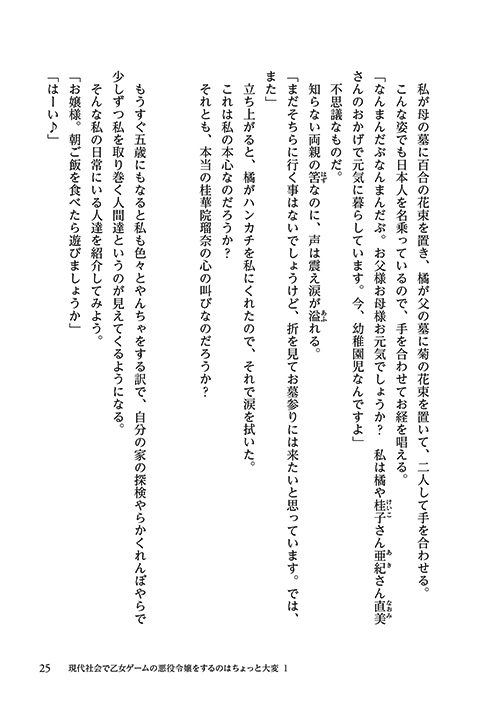 私が母の墓に百合の花束を置き、橘が父の墓に菊の花束を置いて、二人して手を合わせる。
こんな姿でも日本人を名乗っているので、手を合わせてお経を唱える。
「なんまんだぶなんまんだぶ。お父様お母様お元気でしょうか？　私は橘や桂子さん亜紀さん直美
さんのおかげで元気に暮らしています。今、幼稚園児なんですよ」
不思議なものだ。
知らない両親の筈なのに、声は震え涙が溢れる。
「まだそちらに行く事はないでしょうけど、折を見てお墓参りには来たいと思っています。では、
また」
立ち上がると、橘がハンカチを私にくれたので、それで涙を拭いた。
これは私の本心なのだろうか？
それとも、本当の桂華院瑠奈の心の叫びなのだろうか？
もうすぐ五歳にもなると私も色々とやんちゃをする訳で、自分の家の探検やらかくれんぼやらで
少しずつ私を取り巻く人間達というのが見えてくるようになる。
そんな私の日常にいる人達を紹介してみよう。
「お嬢様。朝ご飯を食べたら遊びましょうか」
「はーい♪」
25　現代社会で乙女ゲームの悪役令嬢をするのはちょっと大変 1